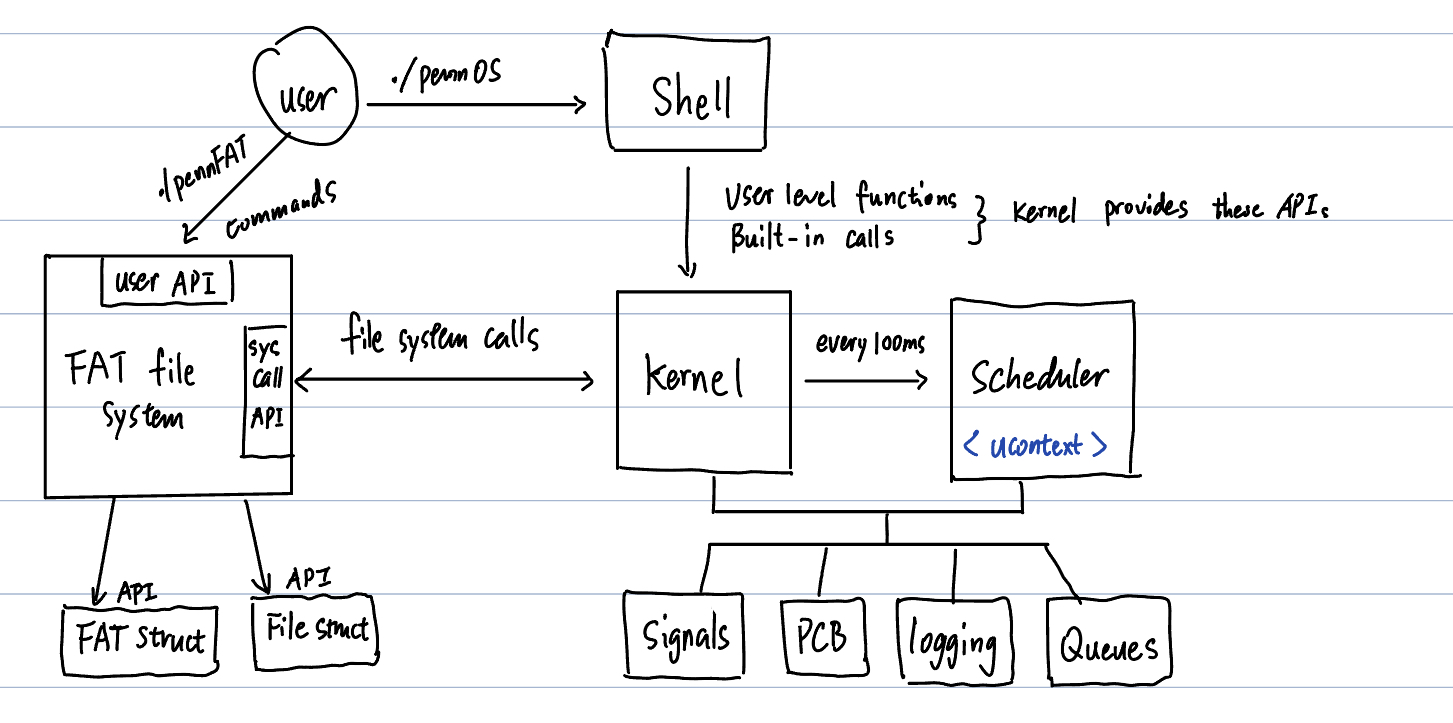 user
./pennOS
Shell
./pennFAT
commands
User level functions
Built-in calls
} Kernel provides these APIs
user API
FAT file
system
sys
call
API
file system calls
Kernel
every 100ms
Scheduler
< ucontext >
API
FAT Struct
API
File Struct
Signals
PCB
logging
Queues